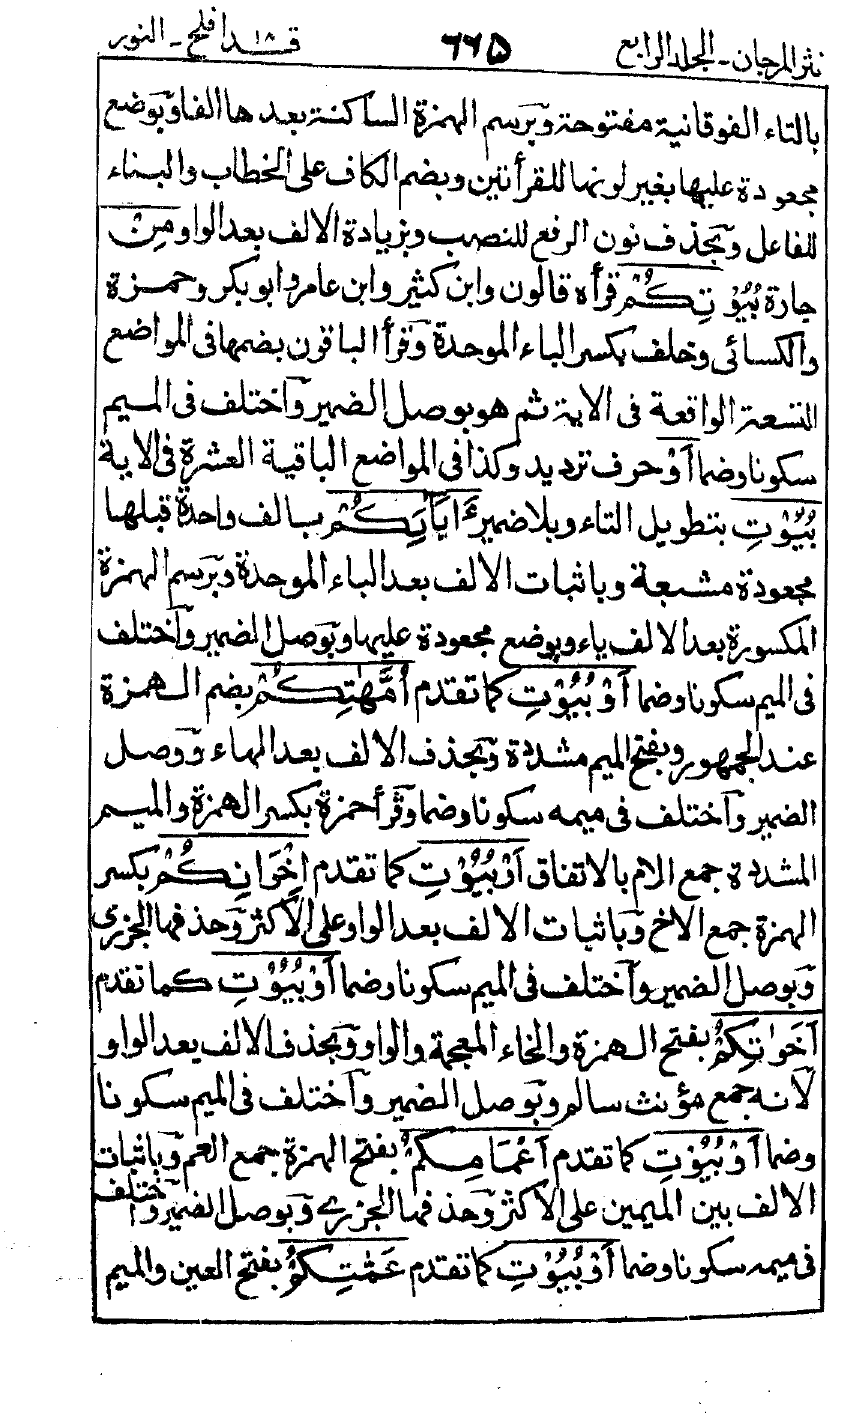 نثر المرجان - المجلد الرابع ٦٦٥ قد افلح ١٨ - النور
بالتاء الفوقانية مفتوحة وبرسم الهمزة الساكنة بعدها الفا وبوضع
مجعودة عليها بغير لونها للقرأتين وبضم الكاف على الخطاب والبناء
للفاعل وبحذف نون الرفع للنصب وبزيادة الالف بعد الواو مِنْ
جارة بُيُوْتِكُمْ قرأه قالون وابن كثير وابن عامر وابو بكر وحمزة
والكسائى وخلف بكسر الباء الموحدة وقرأ الباقون بضمها فى المواضع
التسعة الواقعة فى الاية ثم هو بوصل الضمير وآختلف فى الميم
سكونا وضما اَوْ حرف ترديد وكذا فى المواضع الباقية العشرة فى الاية
بُيُوْتِ بتطويل التاء وبلا ضمير ءَابَآئِكُمْ بالف واحدة قبلها
مجعودة مشبعة وباثبات الالف بعد الباء الموحدة وبرسم الهمزة
المكسورة بعد الالف ياء وبوضع مجعودة عليها وبوصل الضمير وآختلف
فى الميم سكونا وضما اَوْ بُيُوْتِ كما تقدم اُمَّهٰتِكُمْ بضم الهمزة
عند الجمهور وبفتح الميم مشددة وبحذف الالف بعد الهاء ووصل
الضمير وآختلف فى ميمه سكونا وضما وقرأ حمزة بكسر الهمزة والميم
المشددة جمع الام بالاتفاق اَوْ بُيُوْتِ كما تقدم اِخْوَانِكُمْ بكسر
الهمزة جمع الاخ وباثبات الالف بعد الواو على الاكثر وحذفها الجزرى
وبوصل الضمير وآختلف فى الميم سكونا وضما اَوْ بُيُوْتِ كما تقدم
اَخَوٰتِكُمْ بفتح الهمزة والخاء المعجمة والواو وبحذف الالف بعد الواو
لانه جمع مؤنث سالم وبوصل الضمير وآختلف فى الميم سكونا
وضما اَوْ بُيُوْتِ كما تقدم اَعْمَامِكُمْ بفتح الهمزة جمع العم وباثبات
الالف بين الميمين على الاكثر وحذفها الجزرى وبوصل الضمير وآختلف
فى ميمه سكونا وضما اَوْ بُيُوْتِ كما تقدم عَمّٰتِكُمْ بفتح العين والميم